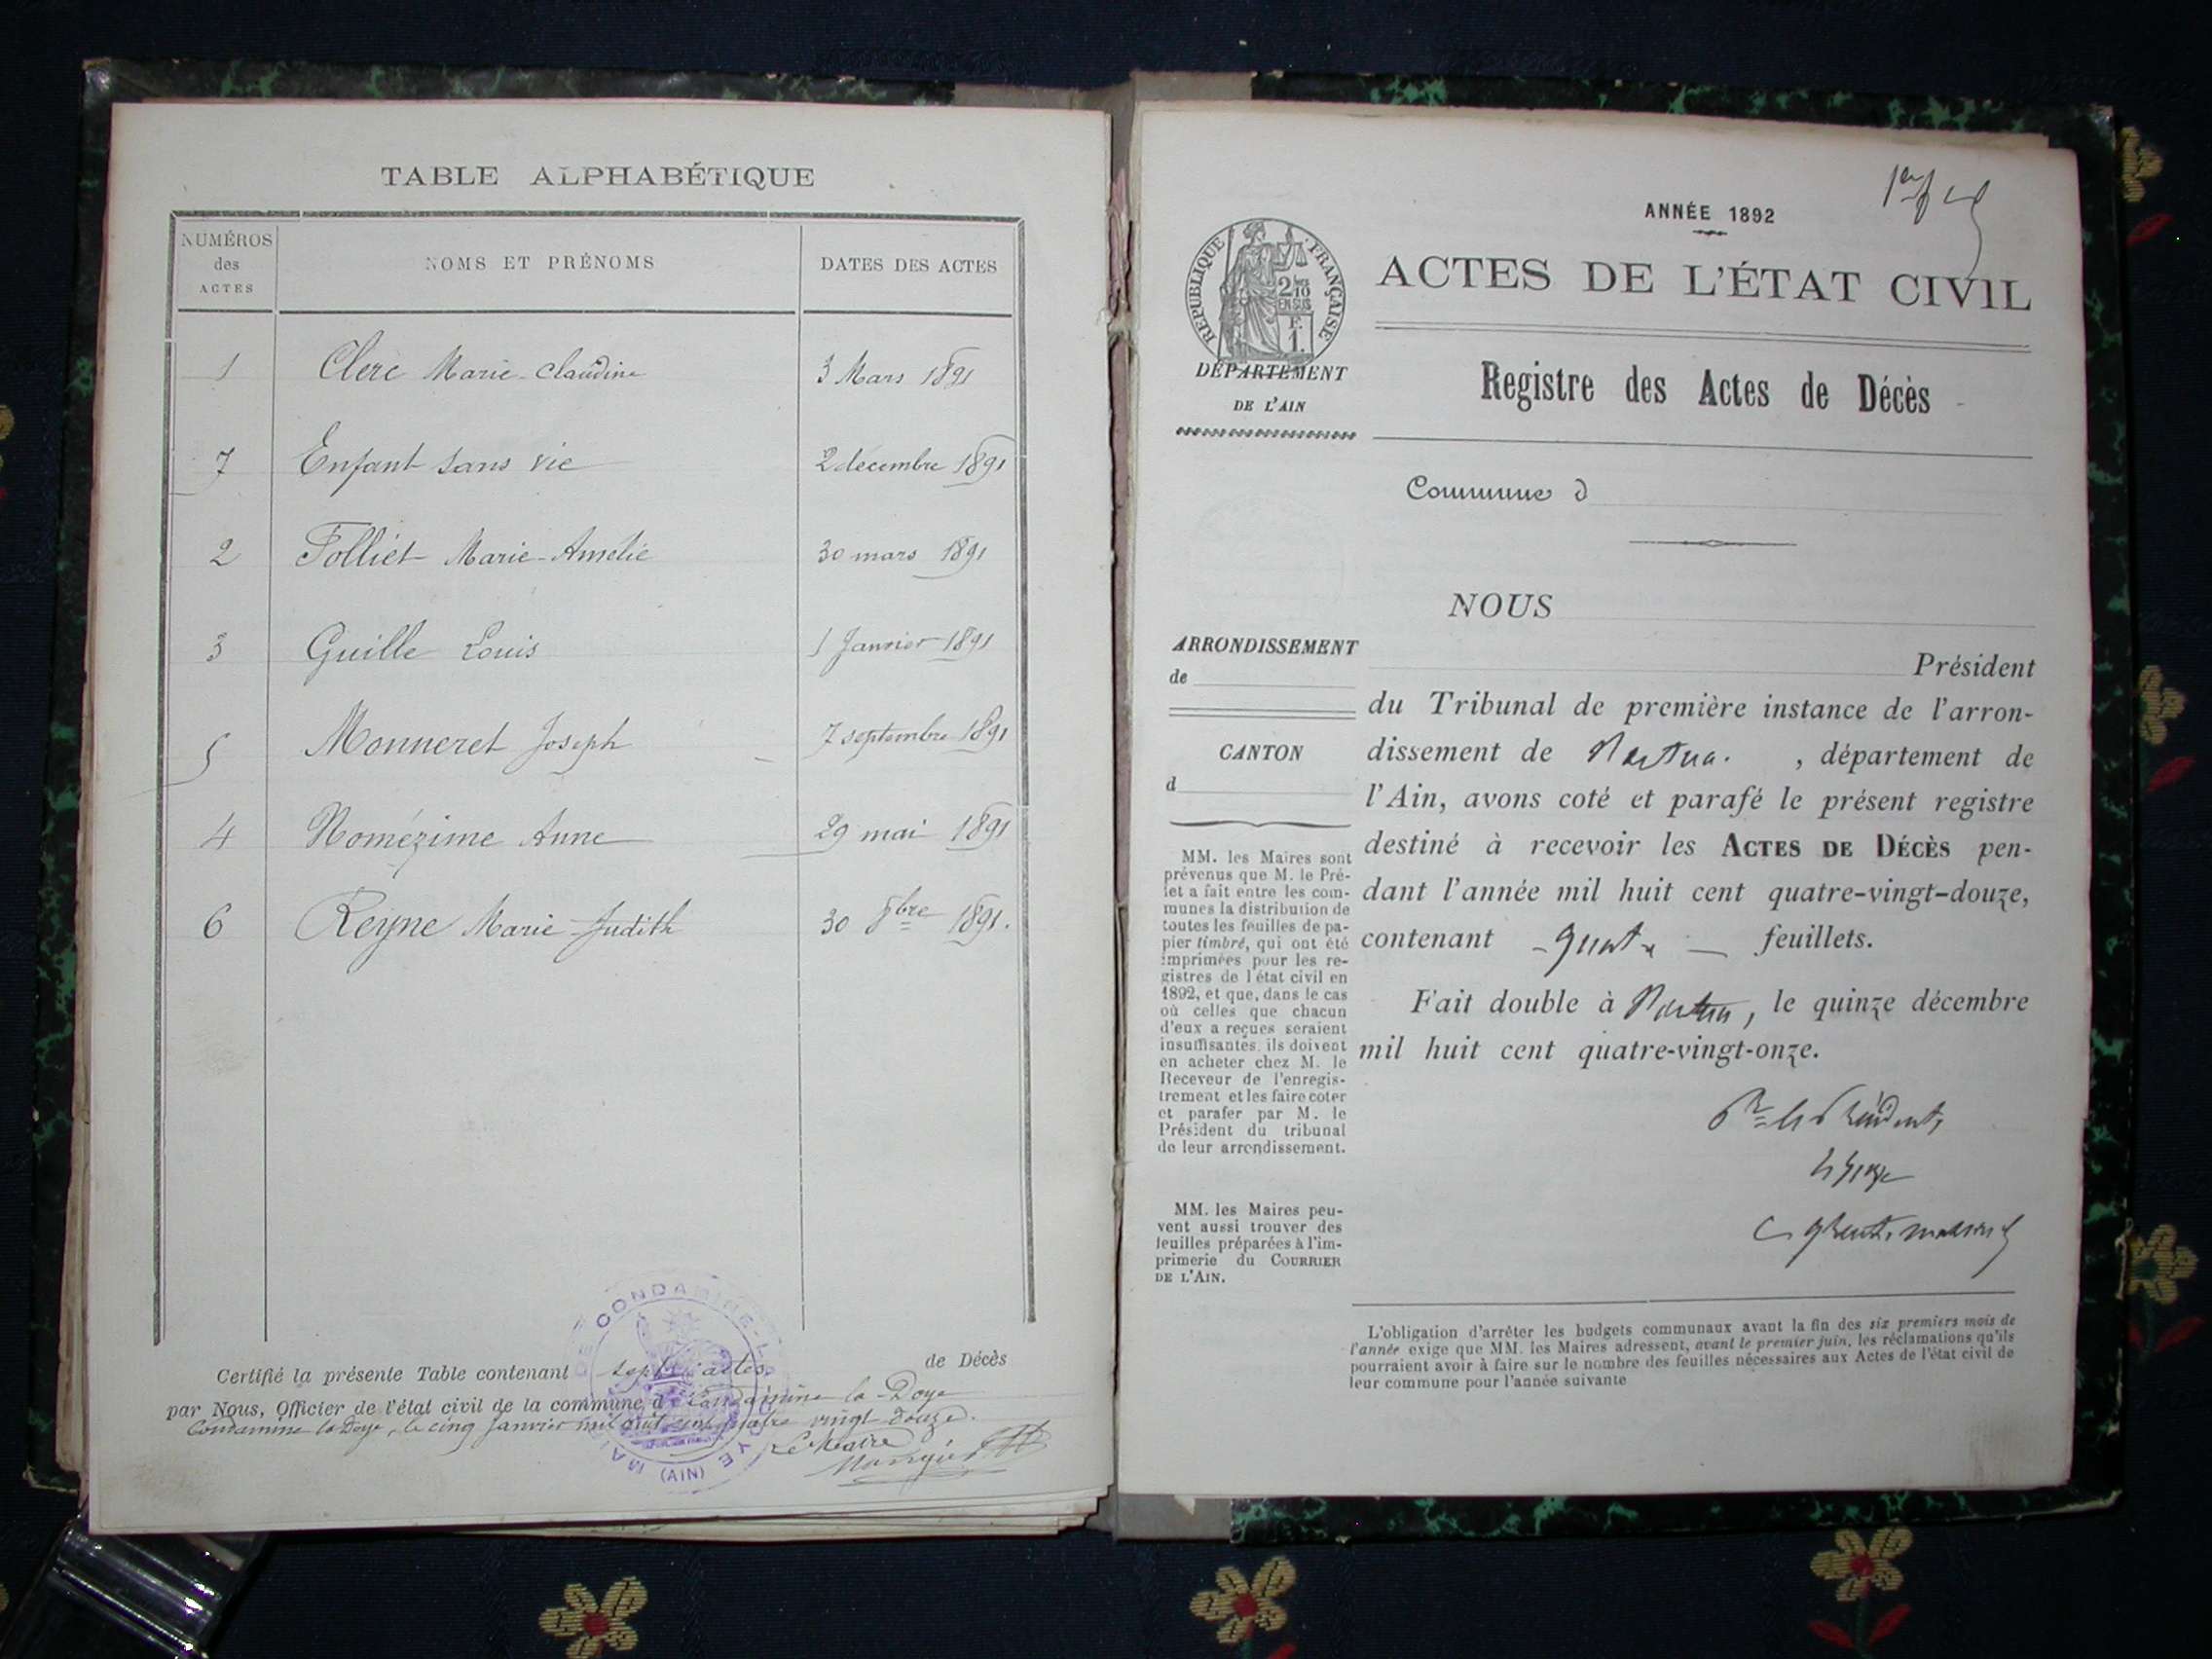 TABLE ALPHABÉTIQUE
NUMÉROS des ACTES NOMS ET PRÉNOMS DATES DES ACTES
1 Clerc Marie-Claudine 3 Mars 1891
7 Enfant sans vie 2 décembre 1891
2 Folliet Marie-Amélie 30 mars 1891
3 Guille Louis 1 Janvier 1891
5 Monneret Joseph 7 septembre 1891
4 Nomézime Anne 29 mai 1891
6 Reyne Marie-Judith 30 8bre 1891.
Certifié la présente Table contenant sept actes de Décès
par Nous, Officier de l'état civil de la commune de Condamine la Doye
Condamine la Doye, le cinq Janvier mil huit cent quatre vingt douze.
Le Maire
MAIRIE DE CONDAMINE-LA-DOYE
(AIN)
ANNÉE 1892
RÉPUBLIQUE FRANÇAISE
2/10 EN SUS
F. 1.
ACTES DE L'ÉTAT CIVIL
DÉPARTEMENT
DE L'AIN
Registre des Actes de Décès
Commune d
NOUS
ARRONDISSEMENT
de
CANTON
d
Président
du Tribunal de première instance de l'arron-
dissement de Nantua. , département de
l'Ain, avons coté et parafé le présent registre
destiné à recevoir les ACTES DE DÉCÈS pen-
dant l'année mil huit cent quatre-vingt-douze,
contenant - quatre - feuillets.
Fait double à Nantua, le quinze décembre
mil huit cent quatre-vingt-onze.
Pr le Président,
MM. les Maires sont
prévenus que M. le Pré-
fet a fait entre les com-
munes la distribution de
toutes les feuilles de pa-
pier timbré, qui ont été
imprimées pour les re-
gistres de l'état civil en
1892, et que, dans le cas
où celles que chacun
d'eux a reçues seraient
insuffisantes, ils doivent
en acheter chez M. le
Receveur de l'enregis-
trement et les faire coter
et parafer par M. le
Président du tribunal
de leur arrondissement.
MM. les Maires peu-
vent aussi trouver des
feuilles préparées à l'im-
primerie du COURRIER
DE L'AIN.
L'obligation d'arrêter les budgets communaux avant la fin des six premiers mois de
l'année exige que MM. les Maires adressent, avant le premier juin, les réclamations qu'ils
pourraient avoir à faire sur le nombre des feuilles nécessaires aux Actes de l'état civil de
leur commune pour l'année suivante